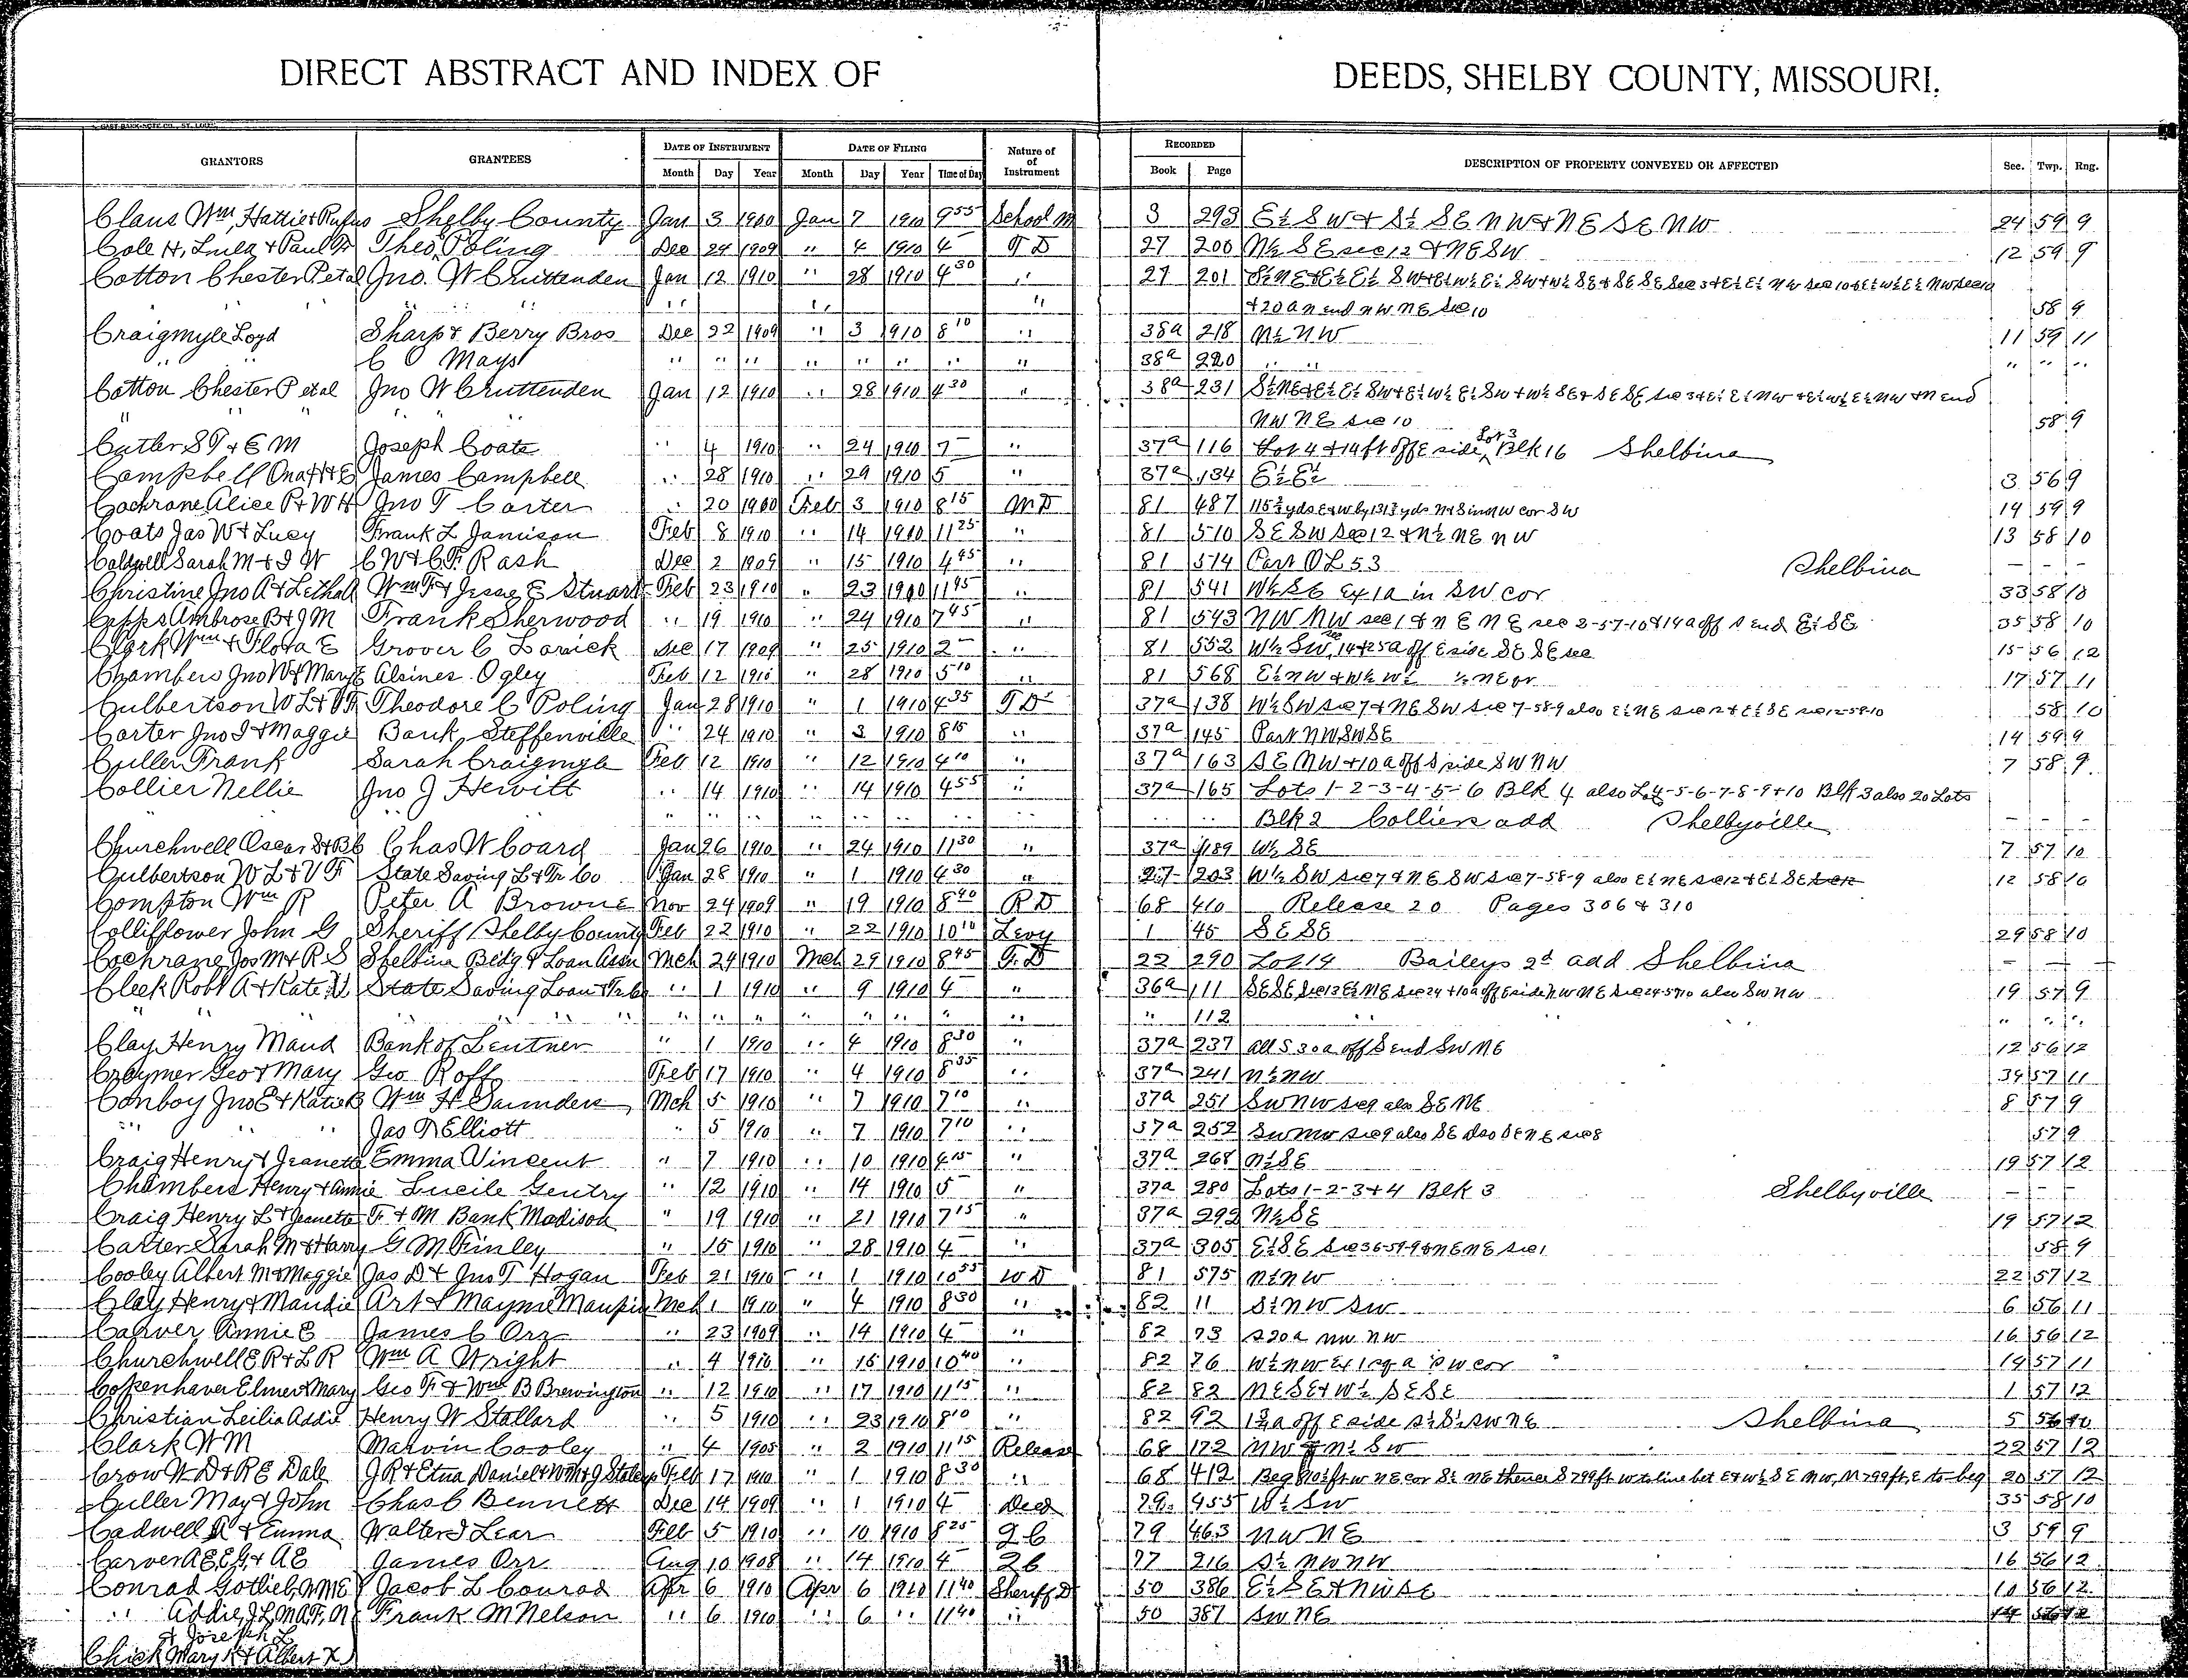 DIRECT ABSTRACT AND INDEX OF DEEDS, SHELBY COUNTY, MISSOURI.
GRANTORS GRANTEES DATE OF INSTRUMENT DATE OF FILING Nature of of Instrument RECORDED DESCRIPTION OF PROPERTY CONVEYED OR AFFECTED Sec. Twp. Rng.
Month Day Year Month Day Year Time of Day Book Page
Claus Wm, Hattie & Rufus Shelby County Jan 3 1900 Jan 7 1910 9 55 School M 3 293 E½ SW & S½ SE NW & NE SE NW 24 59 9
Cole H, & Paul Theo Poling Dec 24 1909 " 4 1910 4 – T D 27 200 N½ SE sec 12 & NE SW 12 59 9
Cotton Chester Petal Jno. W Cruttenden Jan 12 1910 " 28 1910 4 30 " 27 201 S½ NE & E½ E½ SW & E½ W½ E½ SW & W½ SE & SE SE Sec 3 & E½ E½ NW Sec 10 & E½ W½ E½ NW Sec 10
" " " & 20 a N end NW NE Sec 10 58 9
Craigmyle Loyd Sharp & Berry Bros Dec 22 1909 " 3 1910 8 10 " 38a 218 N½ NW 11 59 11
" " C O Mays " " " " " " " " 38a 220 " " " " "
Cotton Chester Petal Jno W Cruttenden Jan 12 1910 " 28 1910 4 30 " 38a 231 S½ NE & E½ E½ SW & E½ W½ E½ SW & W½ SE & SE SE Sec 3 & E½ E½ NW & E½ W½ E½ NW & N end
" " " " " NW NE Sec 10 58 9
Cutler S T & E M Joseph Coate " 4 1910 " 24 1910 7 – " 37a 116 Lot 4 & 14 ft off E side Lot 3 Blk 16 Shelbina
Campbell Ona & H E James Campbell " 28 1910 " 29 1910 5 " 37a 134 E½ E½ 3 56 9
Cochrane Alice P & W H Jno T Carter " 20 1900 Feb 3 1910 8 15 M D 81 487 yds E & W by yds N & S in NW cor SW 14 59 9
Coats Jas W & Lucy Frank L Jamison Feb 8 1910 " 14 1910 11 25 " 81 510 SE SW Sec 12 & N½ NE NW 13 58 10
Caldwell Sarah M & J W C W & C F Rash Dec 2 1909 " 15 1910 4 45 " 81 514 Part O L 53 Shelbina – – –
Christine Jno A & Letha A Wm F & Jesse E Stuart Feb 23 1910 " 23 1910 11 45 " 81 541 W½ SE Ex 1a in SW cor 33 58 10
Capps Ambrose B & J M Frank Sherwood " 19 1910 " 24 1910 7 45 " 81 543 NW NW sec 1 & NE NE sec 2-57-10 & 14 a off S end E½ SE 35 58 10
Clark Wm & Flora E Grover C Dec 17 1909 " 25 1910 2 – " 81 552 W½ SW sec 14 & 25a off E side SE SE sec 15 56 12
Chambers Jno W & Mary E Alsines Ogley Feb 12 1910 " 28 1910 5 10 " 81 568 E½ NW & W½ W½ ½ NE 17 57 11
Culbertson W L & V F Theodore C Poling Jan 28 1910 " 1 1910 4 35 T D 37a 138 W½ SW Sec 7 & NE SW Sec 7-58-9 also E½ NE Sec 12 & E½ SE Sec 12-58-10 58 10
Carter Jno J & Maggie Bank, Steffenville " 24 1910 " 3 1910 8 15 " 37a 145 Part NW SW SE 14 59 9
Culler Frank Sarah Craigmyle Feb 12 1910 " 12 1910 4 10 " 37a 163 SE NW & 10 a off S side SW NW 7 58 9
Collier Nellie Jno J Hewitt " 14 1910 " 14 1910 4 55 " 37a 165 Lots 1-2-3-4-5-6 Blk 4 also L 4-5-6-7-8-9 & 10 Blk 3 also 20 Lots
" " " " " " " " " " Blk 2 Colliers add Shelbyville – –
Churchwell Oscar Chas W Coard Jan 26 1910 " 24 1910 11 30 " 37a 189 W½ SE 7 57 10
Culbertson W L & V F State Saving L & Tr Co Jan 28 1910 " 1 1910 4 30 " 27 203 W½ SW Sec 7 & NE SW Sec 7-58-9 also E½ NE Sec 12 & E½ SE 12 58 10
Compton Wm R Peter A Browne Nov 24 1909 " 19 1910 8 40 R D 68 410 Release 20 Pages 306 & 310
Colliflower John G Sheriff Shelby County Feb 22 1910 " 22 1910 10 10 Levy 1 45 SE SE 29 58 10
Cochrane Jos M & R S Shelbina Bldg & Loan Assn Mch 24 1910 Mch 29 1910 8 45 T D 22 290 Lot 14 Baileys 2d add Shelbina – – –
Cleek Robt A & Kate State Saving Loan & Tr Co " 1 1910 " 9 1910 4 – " 36a 111 SE SE Sec 13 E½ NE Sec 24 & 10a off E side NW NE Sec 24-57-10 also SW NW 19 57 9
" " " " " " " " " " " " 112 " " " " "
Clay Henry Maud Bank of Lentner " 1 1910 " 4 1910 8 30 " 37a 237 all S 30 a off S end SW NE 12 56 12
Geo & Mary Geo Roff Feb 17 1910 " 4 1910 8 35 " 37a 241 N½ NW 34 57 11
Conboy Jno E & Katie B Wm H Saunders Mch 5 1910 " 7 1910 7 10 " 37a 251 SW NW Sec 9 also SE NE 8 57 9
" " Jas D Elliott " 5 1910 " 7 1910 7 10 " 37a 252 SW NW Sec 9 also SE also SE NE sec 8 57 9
Craig Henry & Jeanette Emma Vincent " 7 1910 " 10 1910 4 15 " 37a 268 N½ SE 19 57 12
Chambers Henry & Annie Lucile Gentry " 12 1910 " 14 1910 5 – " 37a 280 Lots 1-2-3 & 4 Blk 3 Shelbyville – –
Craig Henry L & Jeanette F & M Bank Madison " 19 1910 " 21 1910 7 15 " 37a 292 N½ SE 19 57 12
Carter Sarah M & Harry G M Finley " 15 1910 " 28 1910 4 – " 37a 305 E½ SE Sec 36-59-9 & NE NE Sec 1 58 9
Cooley Albert M & Maggie Jas D & Jno T Hogan Feb 21 1910 " 1 1910 10 55 W D 81 575 N½ NW 22 57 12
Clay Henry & Maudie Art & Mayme Maupin Mch 1 1910 " 4 1910 8 30 " 82 11 S½ NW SW 6 56 11
Carver Annie E James C Orr " 23 1909 " 14 1910 4 – " 82 73 S 20 a NW NW 16 56 12
Churchwell E R & L R Wm A Wright " 4 1910 " 15 1910 10 40 " 82 76 W½ NW Ex 1 sq a SW cor 19 57 11
Copenhaver Elmer & Mary Geo F & Wm B Brewington " 12 1910 " 17 1910 11 15 " 82 82 NE SE & W½ SE SE 1 57 12
Christian Leilia Addie Henry W Stallard " 5 1910 " 23 1910 8 10 " 82 92 a off E side S½ S½ SW NE Shelbina 5 56 10
Clark W M Marvin Cooley " 4 1905 " 2 1910 11 15 Release 68 172 NW & N½ SW 22 57 12
Crow W D & R E Dale J R & Etna Daniel & Wm & J Feb 17 1910 " 1 1910 8 30 " 68 412 Beg ft w NE cor S½ NE thence S 799 ft W to line bet E & W½ SE NW, N 799 ft, E to beg 20 57 12
Culler May & John Chas C Bennett Dec 14 1909 " 1 1910 4 – Deed 79 455 W½ SW 35 58 10
Cadwell R & Emma Walter J Lear Feb 5 1910 " 10 1910 8 25 2 C 79 463 NW NE 3 59 9
Carver A E, E G & A E James Orr Aug 10 1908 " 14 1910 4 – 2 C 77 216 S½ NW NW 16 56 12
Conrad Gotlieb, W M E Jacob L Conrad Apr 6 1910 Apr 6 1910 11 40 Sheriff D 50 386 E½ SE & NW SE 10 56 12
" Addie, J L, M A, F, N Frank M Nelson " 6 1910 " 6 " 11 40 " 50 387 SW NE 14 56 12
& Joseph L
Chick Mary K & Albert